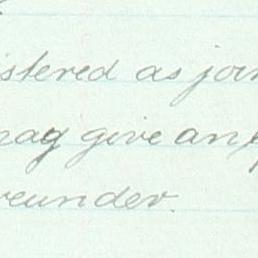 istered as join
nay give any
reunder.